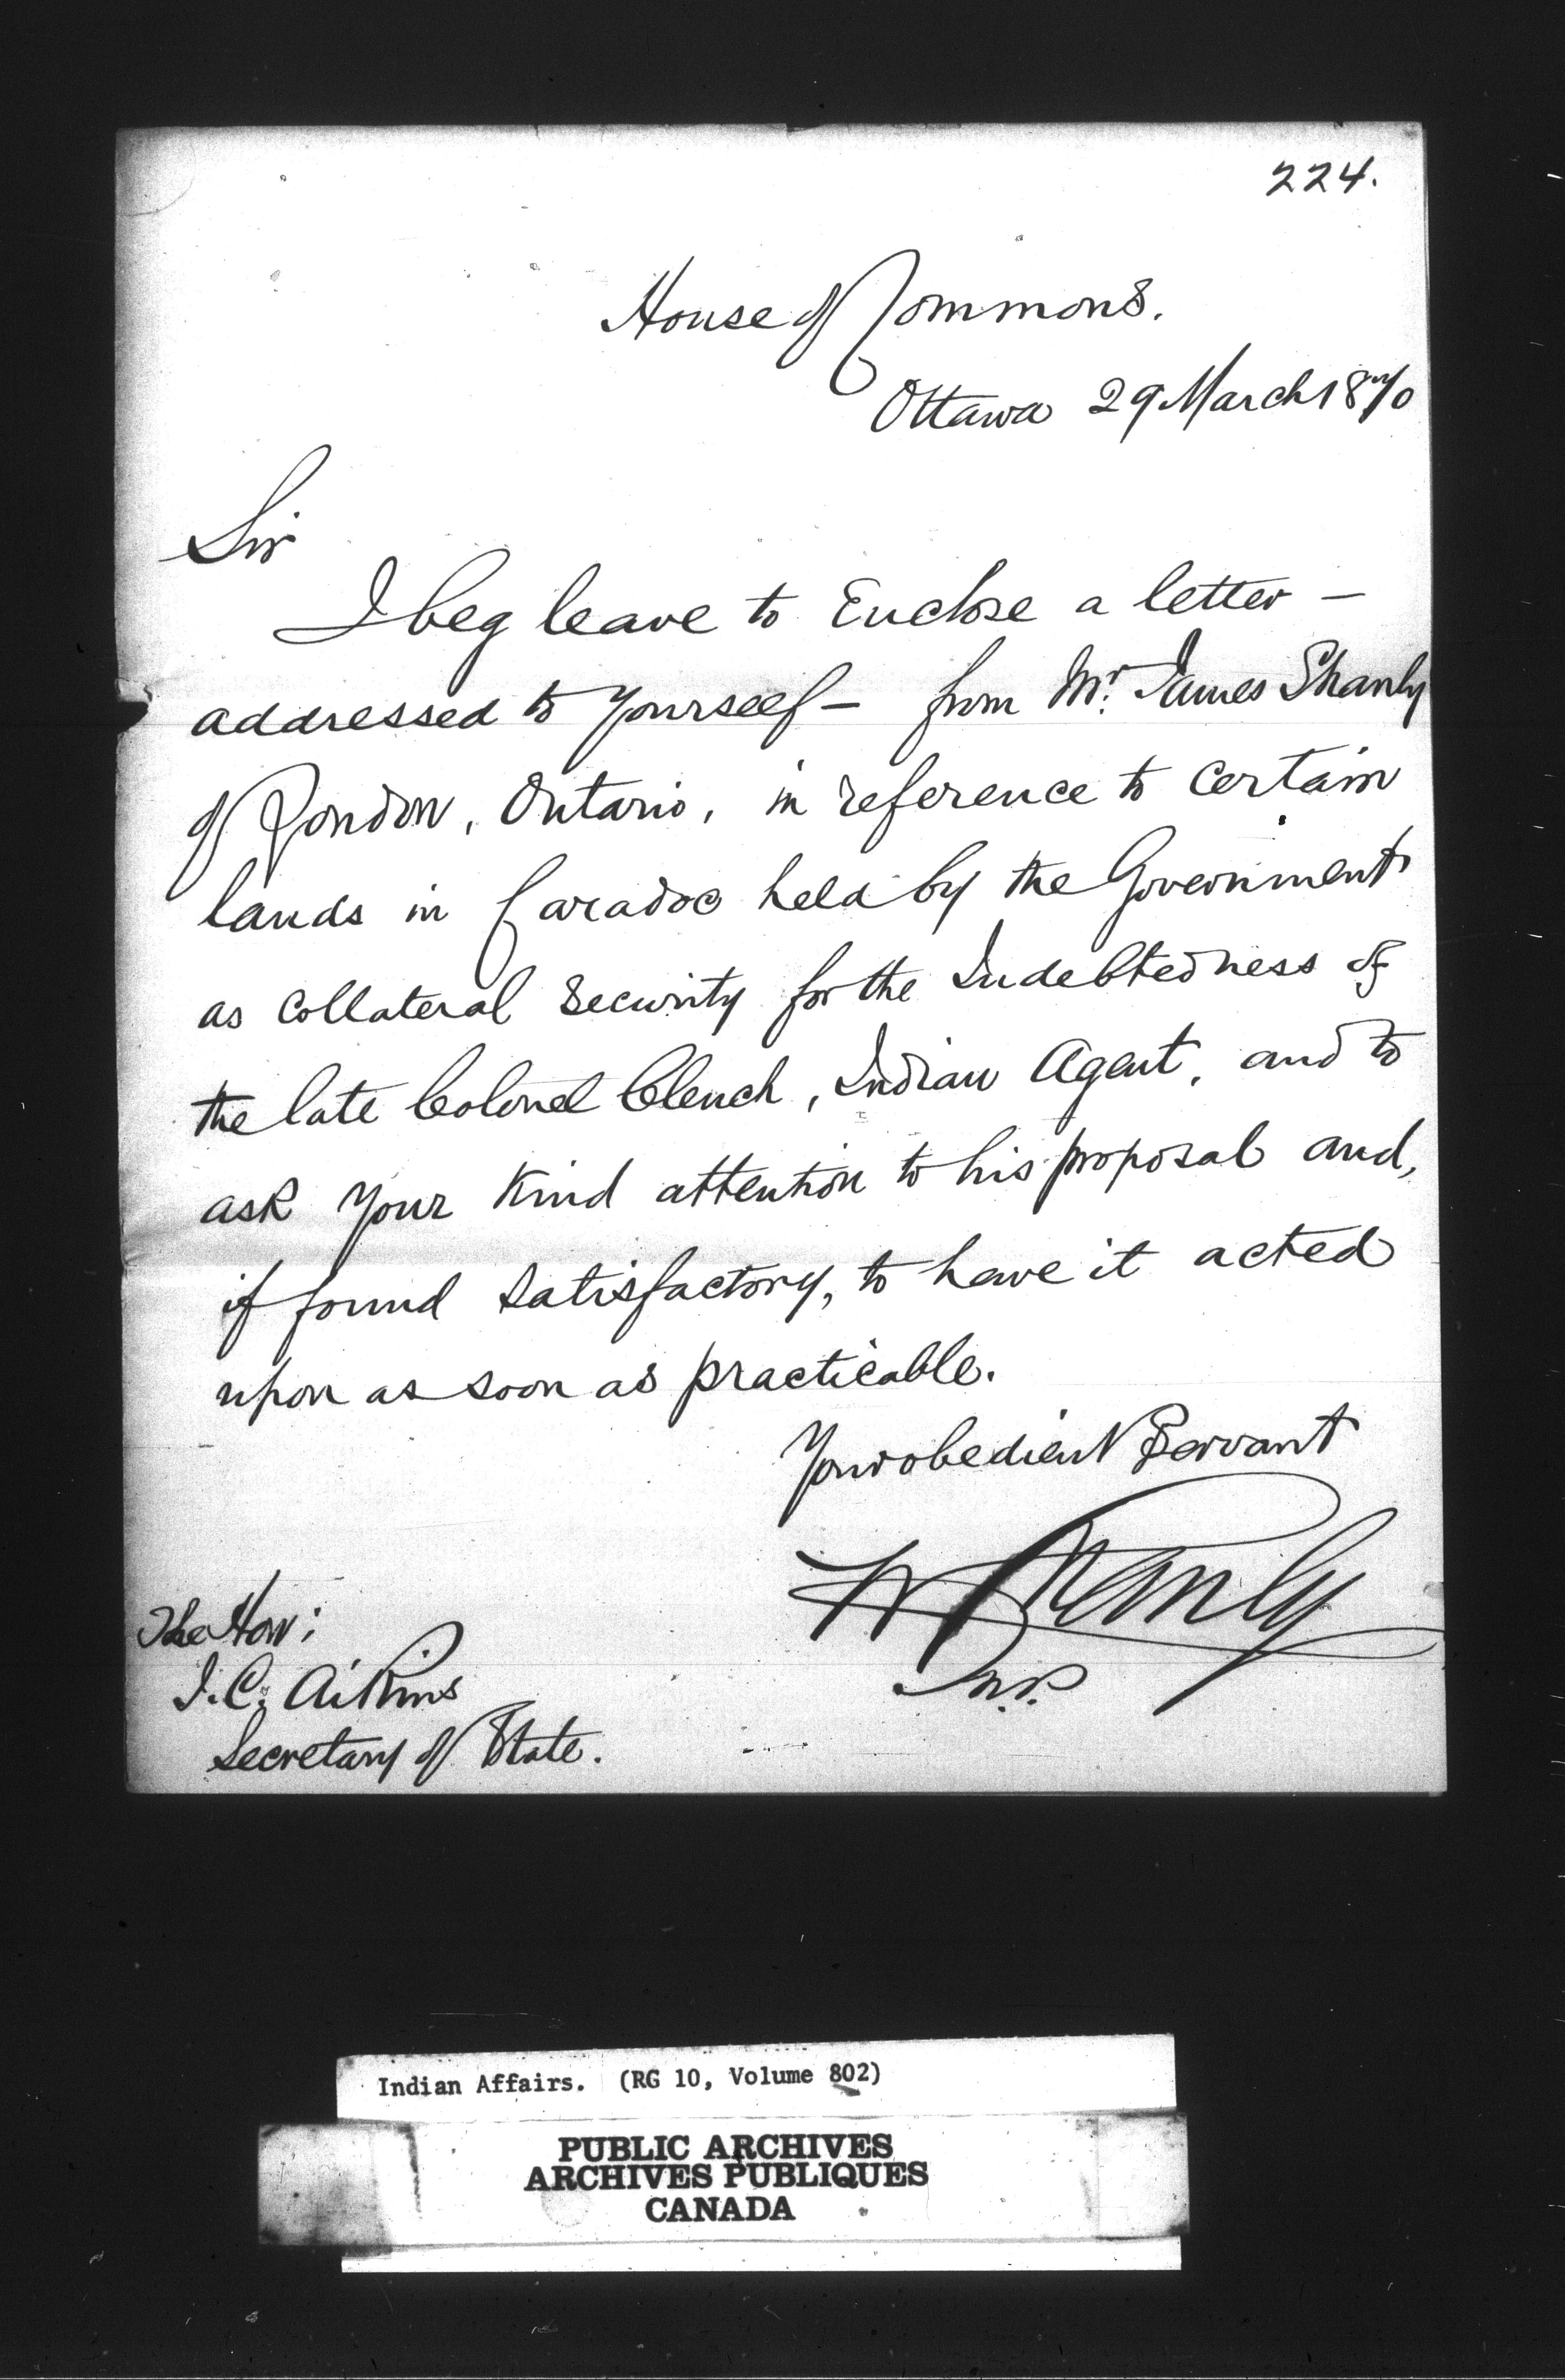 224.
House of Commons.
Ottawa 29 March 1870
Sir
I beg leave to Enclose a letter —
addressed to yourself — from Mr. James Shanly
of London, Ontario, in reference to certain
lands in Caradoc held by the Government
as collateral security for the Indebtedness of
the late Colonel Clench, Indian Agent, and to
ask your kind attention to his proposal and,
if found satisfactory, to have it acted
upon as soon as practicable.
Your obedient Servant
W Shanly
M.P.
The Hon:
J. C. Aikins
Secretary of State.
Indian Affairs. (RG 10, Volume 802)
PUBLIC ARCHIVES
ARCHIVES PUBLIQUES
CANADA